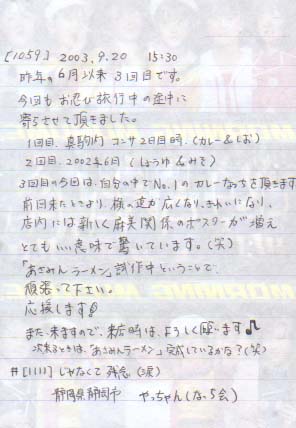 [1059] 2003.9.20 15:30
昨年の6月以来 3回目です。
今回も お忍び旅行中の途中に
寄らせて頂きました。
1回目、真駒内コンサ2日目時、(カレー&しお)
2回目、2002年6月 (しょうゆ&みそ)
3回目の今回は、自分の中でNo.1のカレーなっちを頂きます
前回来たときより、横の道が広くなり、きれいになり、
店内には新しく麻美関係のポスターが増え
とてもいい意味で驚いています。(笑)
「あさみんラーメン」試作中ということで、
頑張って下さい。
応援します
また、来ますので、来店時は、よろしく願います♫
次来るときは、「あさみんラーメン」完成しているかな?(笑)
#[1111]じゃなくて残念(涙)
静岡県静岡市 やっちゃん(なっち会)
MORNING